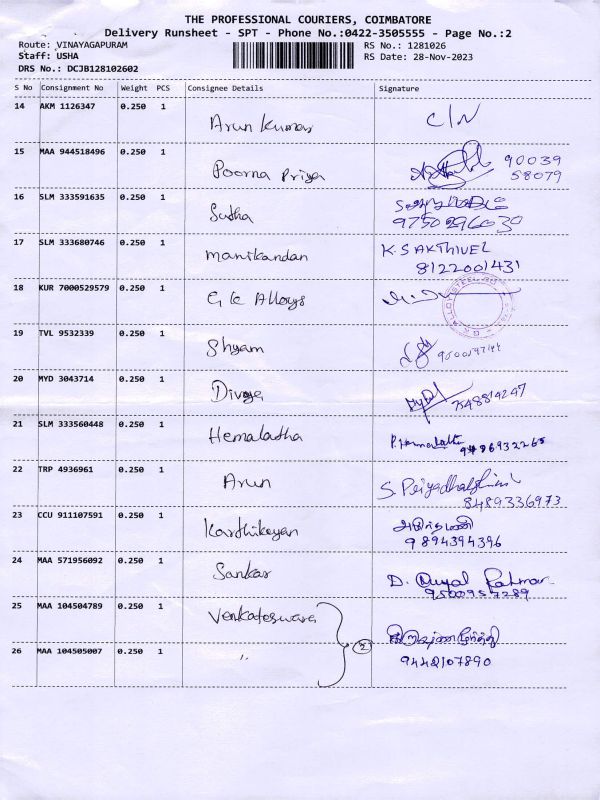 THE PROFESSIONAL COURIERS, COIMBATORE
Delivery Runsheet - SPT - Phone No.:0422-3505555 - Page No.:2
Route: VINAYAGAPURAM RS No.: 1281026
Staff: USHA RS Date: 28-Nov-2023
DRS No.: DCJB128102602
S No Consignment No Weight PCS Consignee Details Signature
14 AKM 1126347 0.250 1
Arun Kumar
15 MAA 944518496 0.250 1
Poorna Priya 90039
58079
16 SLM 333591635 0.250 1
Sutha 9750296030
17 SLM 333680746 0.250 1 K. SAKTHIVEL
Manikandan 8122001431
18 KUR 7000529579 0.250 1
G K Alloys
19 TVL 9532339 0.250 1
Shyam
20 MYD 3043714 0.250 1
Divya 7548814247
21 SLM 333560448 0.250 1
Hemalatha
22 TRP 4936961 0.250 1
Arun 8489336973
23 CCU 911107591 0.250 1
Karthikeyan 9894394396
24 MAA 571956092 0.250 1
Sankar D.
25 MAA 104504789 0.250 1
Venkateswara
26 MAA 104505007 0.250 1 〃 2
9442107890